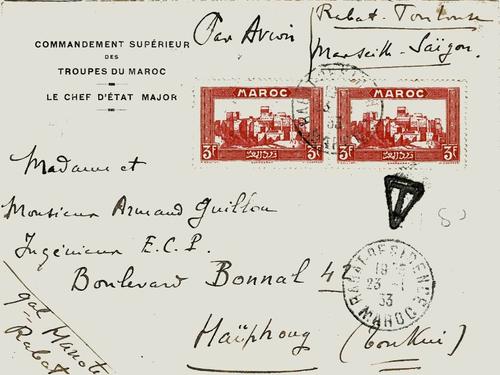 COMMANDEMENT SUPÉRIEUR
DES
TROUPES DU MAROC
LE CHEF D'ÉTAT MAJOR
Par Avion
Rabat-Toulouse
Marseille-Saïgon.
MAROC
3F
3F
MAROC
3F
3F
T
Madame et
Monsieur Armand Guillou
Ingénieur E.C.P.
Boulevard Bonnal 42
Haïphong (Tonkin)
RABAT-RESIDENCE
23 -1
33
MAROC
Rabat